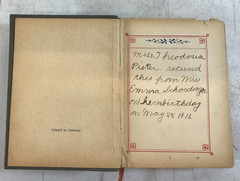 Printed in Germany
Miss Theodosia
Pister, received
this from Miss
Emma Schoedinger
on her birthday
on May 28 1916